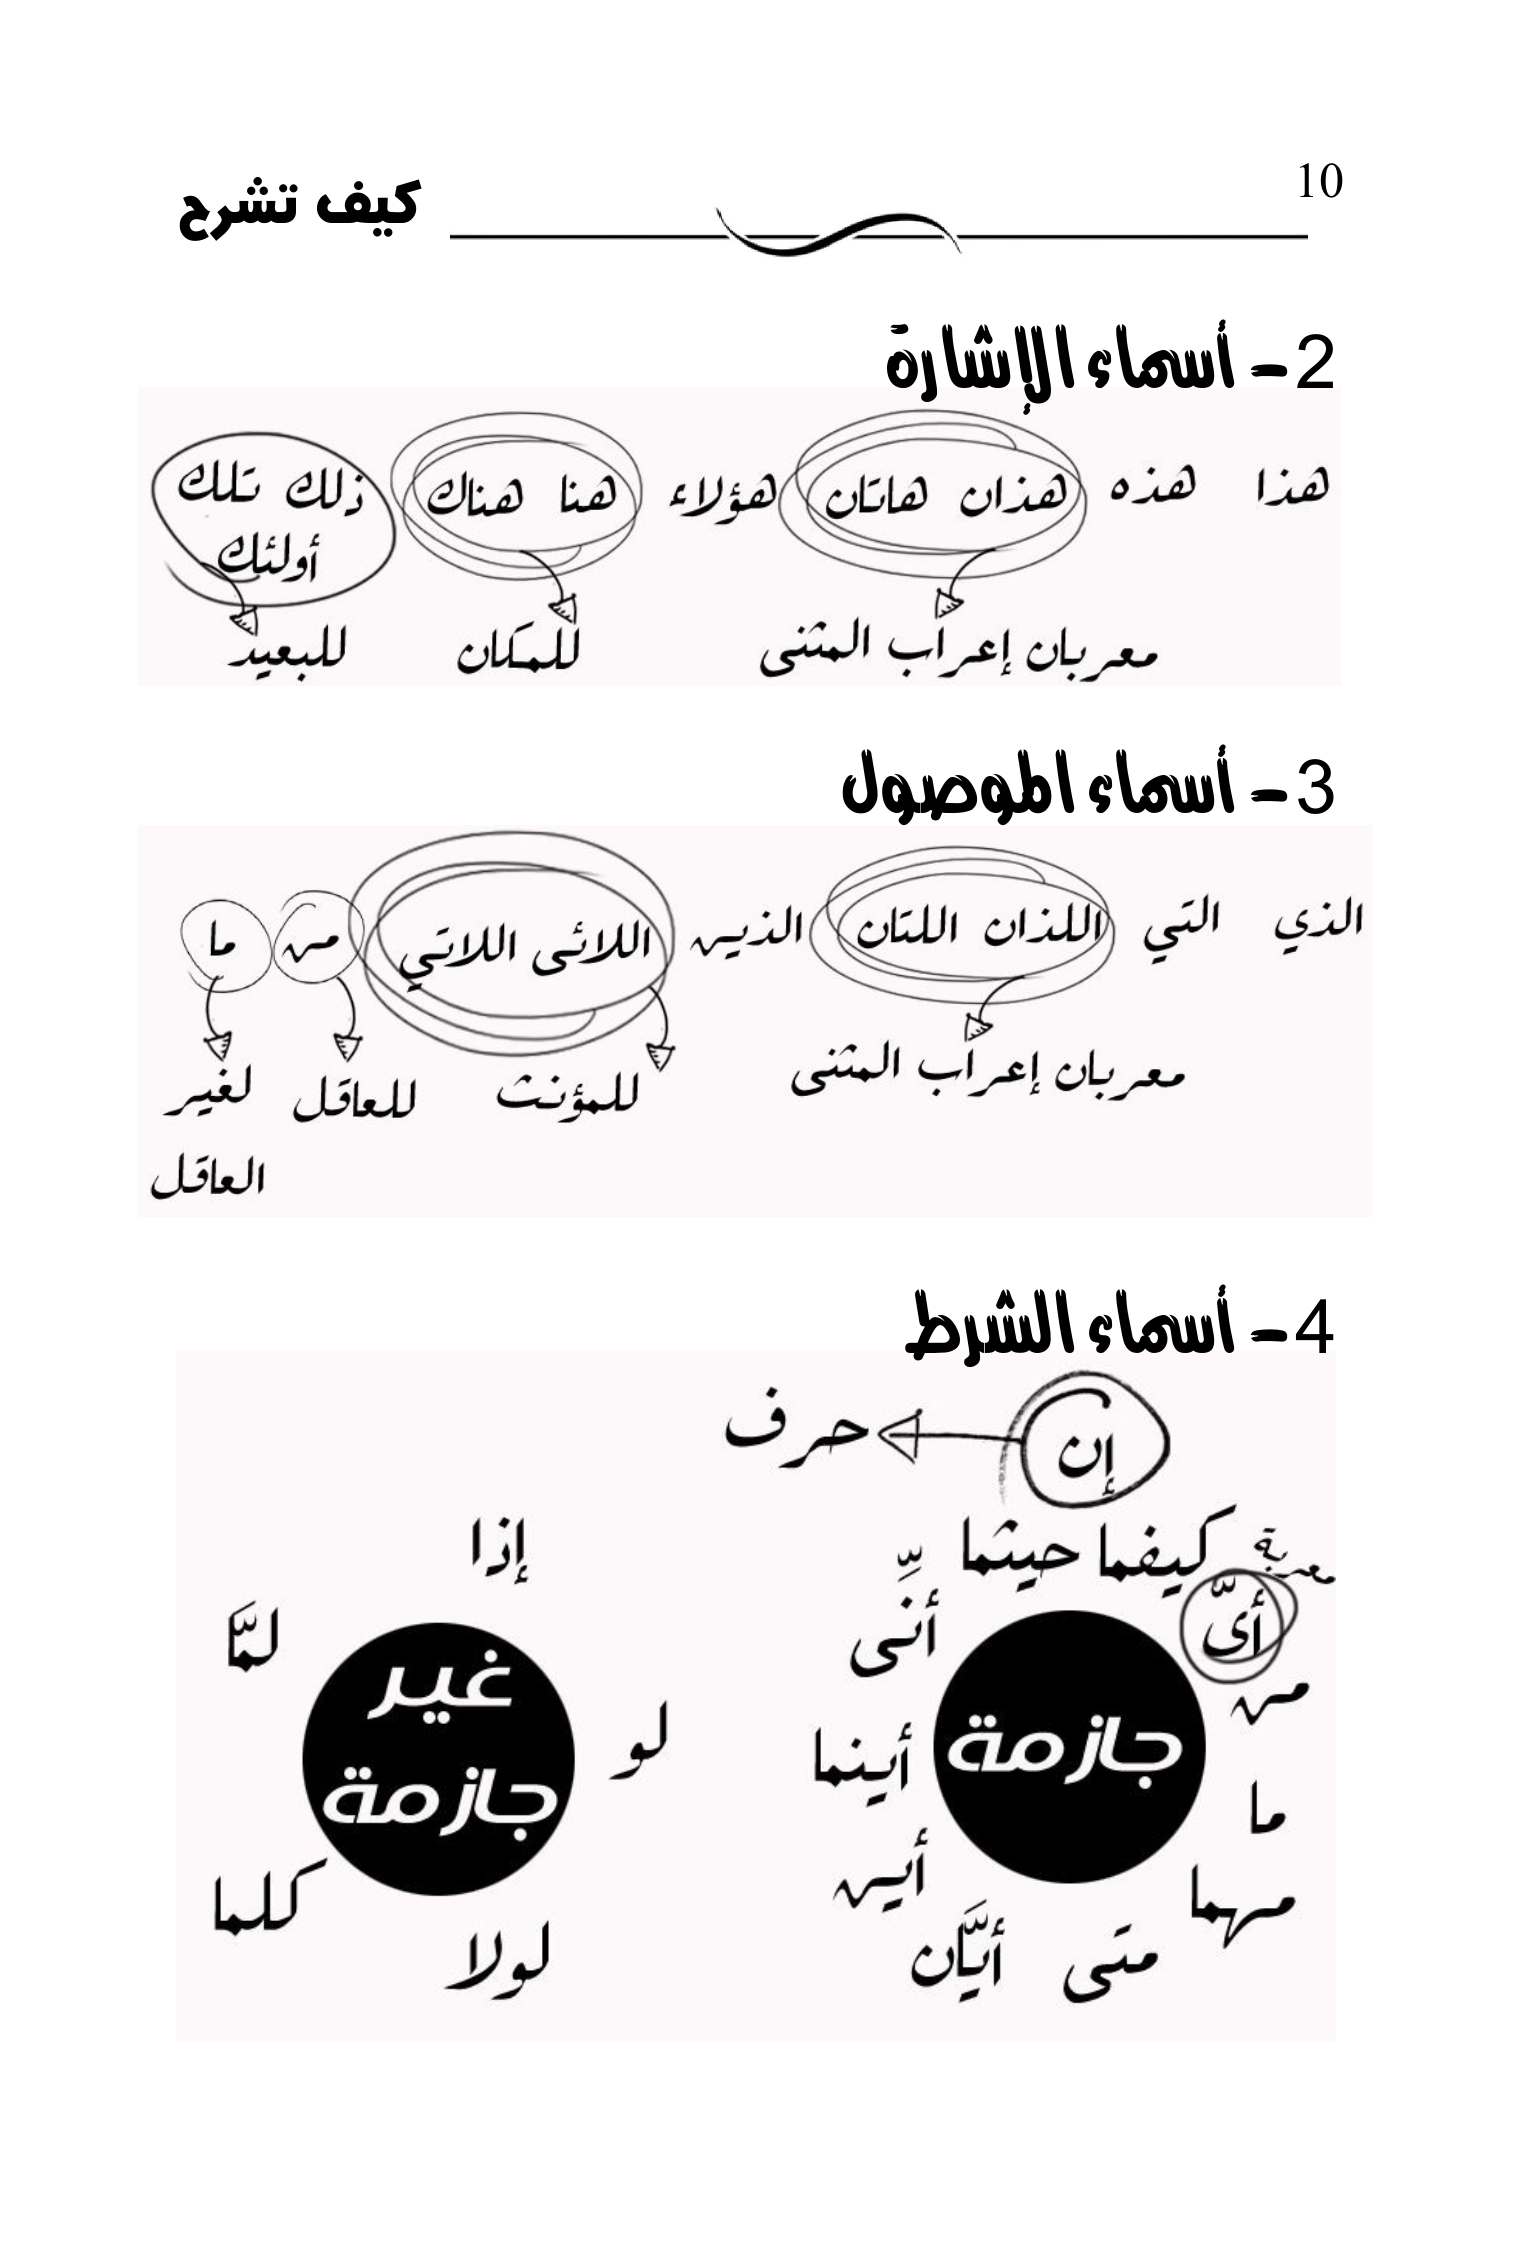 10
كيف تشرح
2 – أسماء الإشارة
هذا هذه هذان هاتان هؤلاء هنا هناك ذلك تلك
أولئك
معربان إعراب المثنى للمكان للبعيد
3 – أسماء الموصول
الذي التي اللذان اللتان الذين اللائى اللاتي من ما
معربان إعراب المثنى للمؤنث للعاقل لغير
العاقل
4 – أسماء الشرط
إن حرف
معربة
كيفما حيثما
أىّ
أنّى
من
أينما
ما
أين
مهما
متى أيَّان
جازمة
إذا
لمَّا
لو
كلما
لولا
غير
جازمة